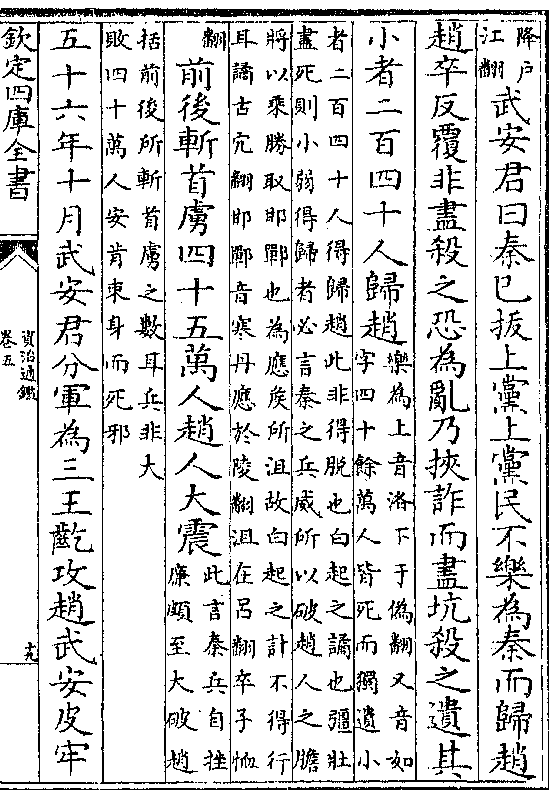 降户
江翻
武安君曰秦已拔上黨上黨民不樂為秦而歸趙
趙卒反覆非盡殺之恐為亂乃挾詐而盡坑殺之遺其
小者二百四十人歸趙
樂為上音洛下于偽翻又音如
字四十餘萬人皆死而獨遺小
者二百四十人得歸趙此非得脱也白起之譎也彊壯
盡死則小弱得歸者必言秦之兵威所以破趙人之膽
將以乘勝取邯鄲也為應侯所沮故白起之計不得行
耳譎古穴翻邯鄲音寒丹應於陵翻沮在呂翻卒子恤
翻
前後斬首虜四十五萬人趙人大震
此言秦兵自挫
廉頗至大破趙
括前後所斬首虜之數耳兵非大
敗四十萬人安肯束身而死邪
五十六年十月武安君分軍為三王齕攻趙武安皮牢
欽定四庫全書
資治通鑑
卷五